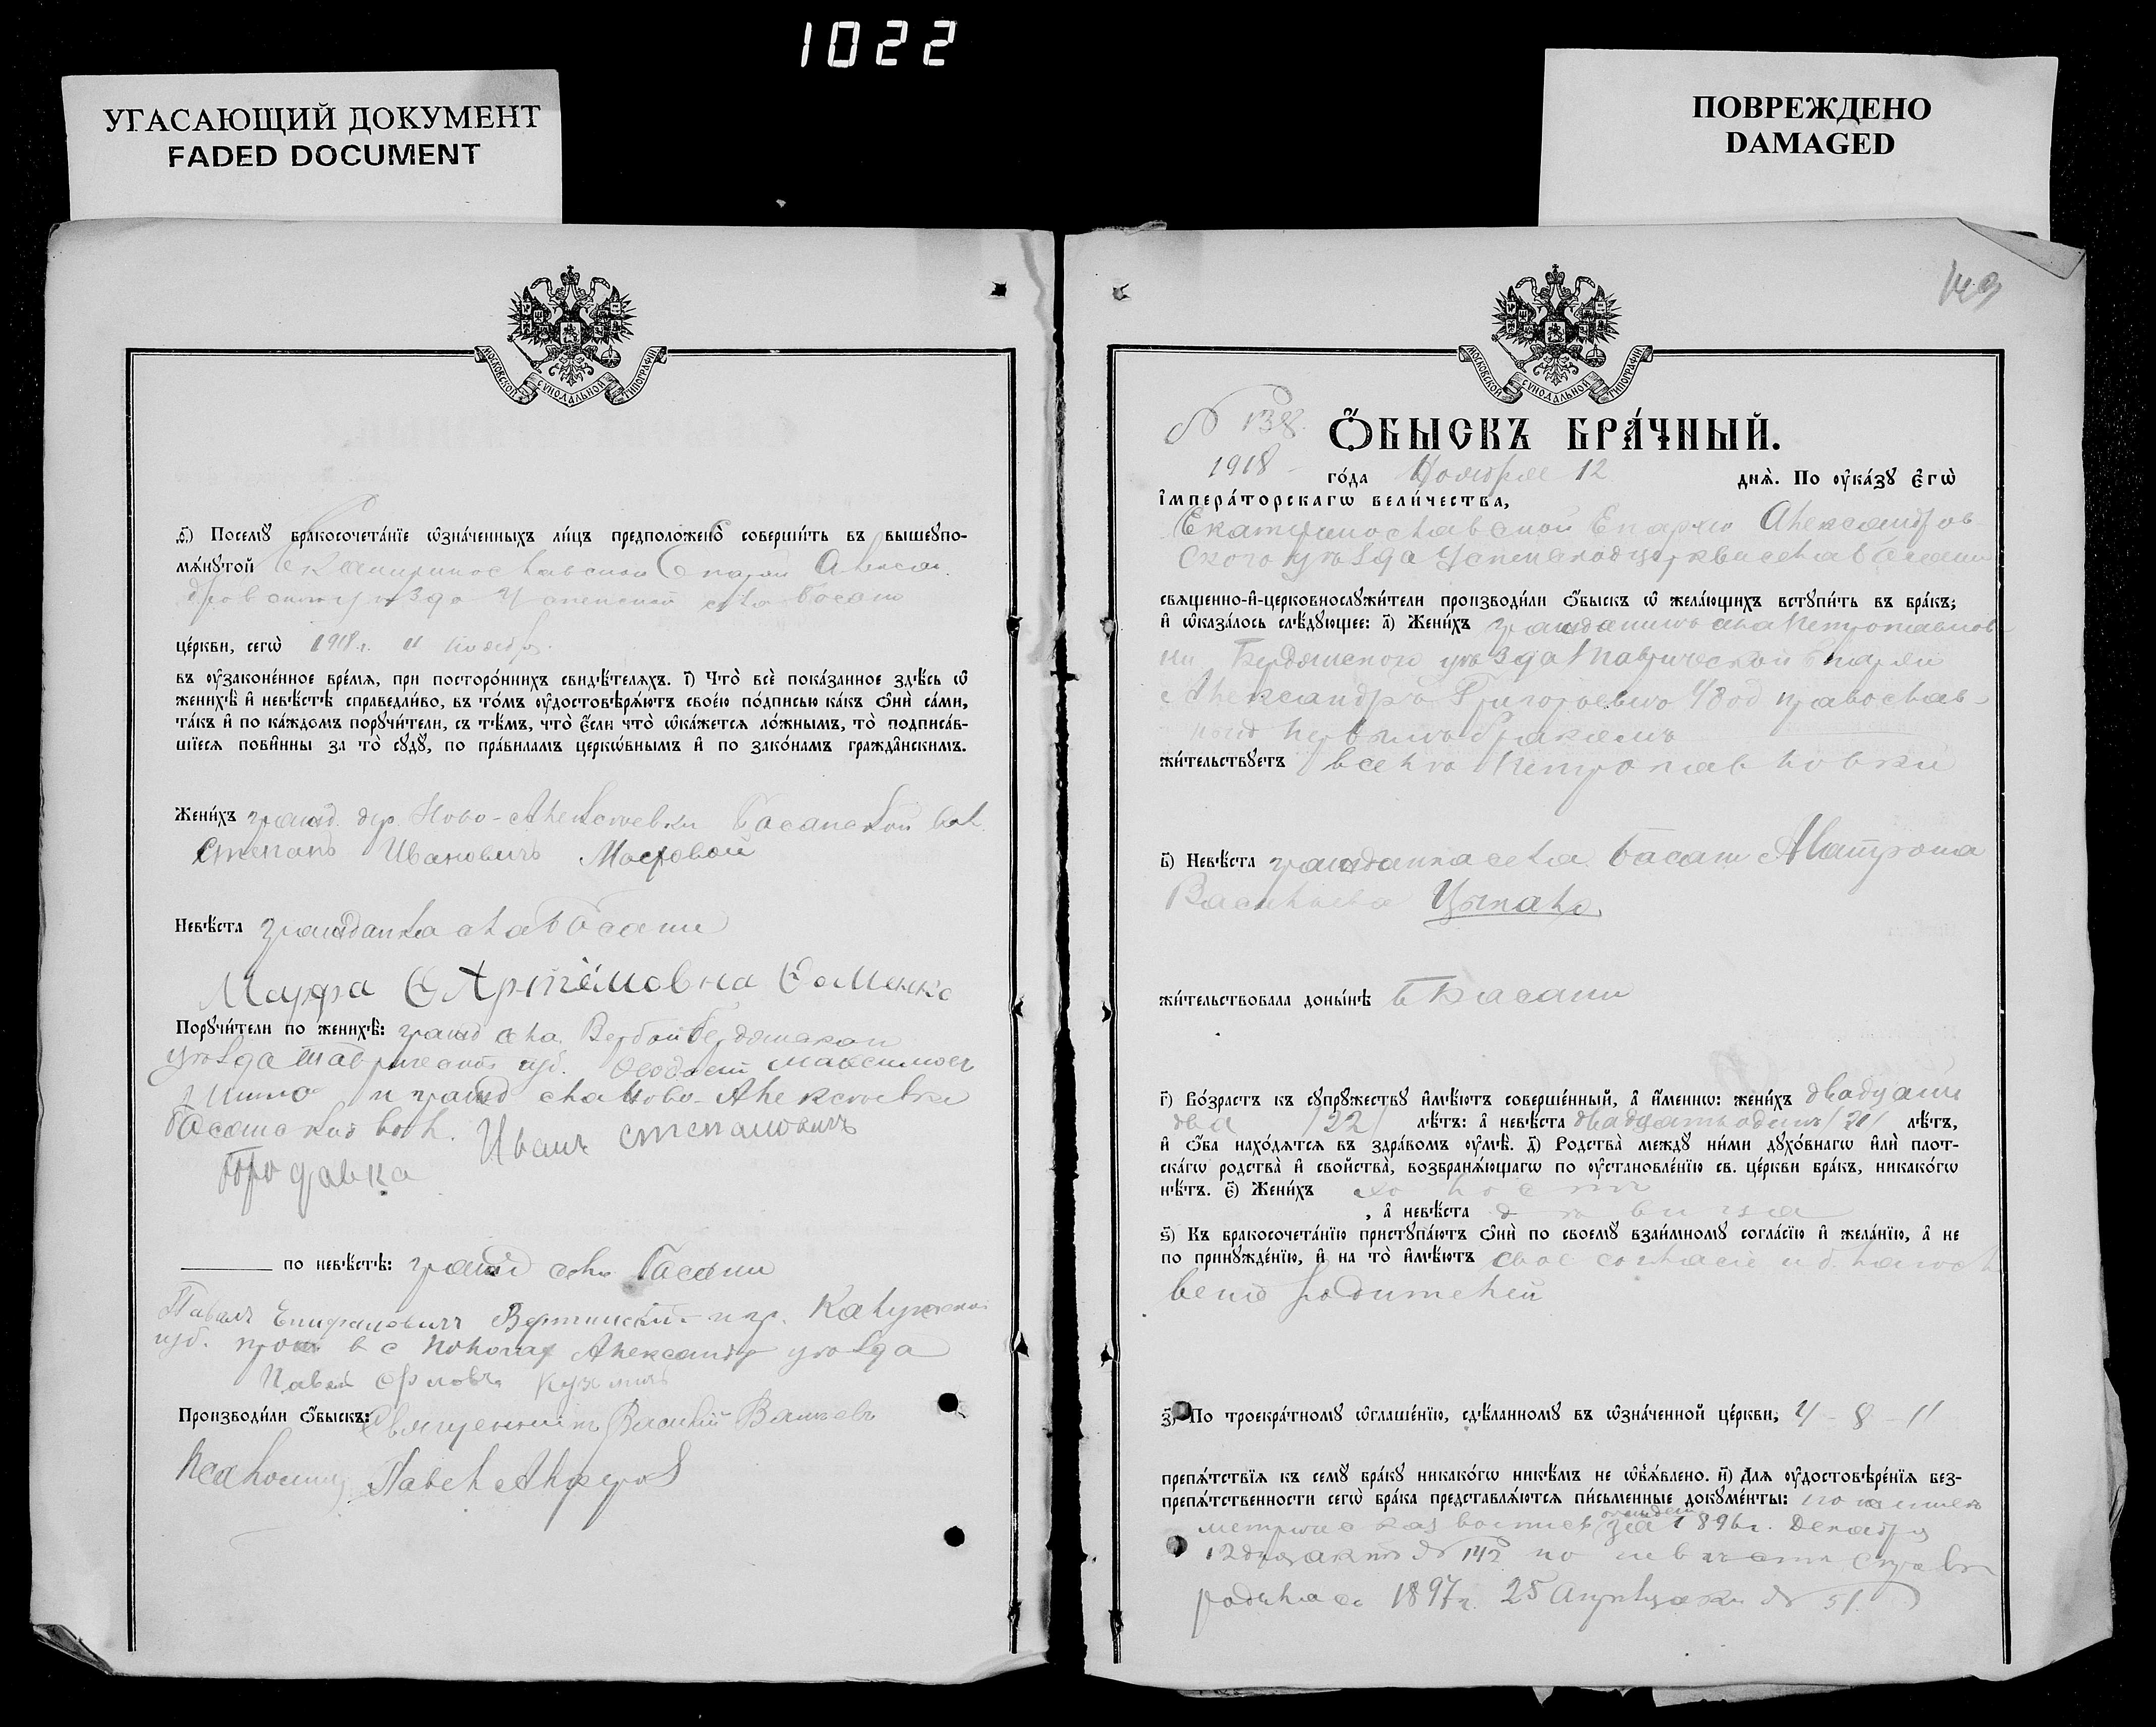 1022
УГАСАЮЩИЙ ДОКУМЕНТ
FADED DOCUMENT
ПОВРЕЖДЕНО
DAMAGED
МОСКОВСКОЙ СѴНОДАЛЬНОЙ ТИПОГРАФІИ
ѳ҃) Посемꙋ̀ бракосочета́нїе ѡ҆зна́ченныхъ ли́цъ предполо́жено совершѝть въ вышеꙋпо-
мѧ́нꙋтой Екатеринославской Епархіи Алексан
дровского уѣзда Успенской села Басани
це́ркви, сегѡ̀ 1918 г. 11 ноября
въ оу҆зако́ненное вре́мѧ, при посторо́ннихъ свидѣ́телѧхъ. і҃) Что̀ всѐ пока́занное здѣ́сь ѡ҆
женихѣ̀ и҆ невѣ́стѣ справедли́во, въ то́мъ оу҆достовѣрѧ́ютъ свое́ю по́дписью ка́къ ѻ҆нѝ са́ми,
та́къ и҆ по ка́ждомъ порꙋчи́тели, съ тѣ́мъ, что̀ є҆́сли что̀ ѡ҆ка́жетсѧ ло́жнымъ, то̀ подписа́в-
шїесѧ пови́нны за то̀ сꙋдꙋ̀, по пра́виламъ церкѡ́внымъ и҆ по зако́намъ гражда́нскимъ.
Жени́хъ гражд. дер. Ново-Алексѣевки Басанской вол.
Степанъ Ивановичъ Мостовой
Невѣ́ста гражданка села Басани
Марфа Артёмовна
Порꙋчи́тели по женихѣ̀: гражд села Вербой Бердянскаго
уѣзда Таврической губ. Феодосій Максимовъ
и гражд села Ново-Алексѣевки
Басанской вол. Иванъ Степановичъ
Бродавка
по невѣ́стѣ: гражд села Басани
Павелъ Епифановичъ Калужской
губ. прож в с Пологах Александр уѣзда
Павелъ
Производи́ли ѻ҆́быскъ: Священникъ Василій
Псаломщ Павелъ
149
МОСКОВСКОЙ СѴНОДАЛЬНОЙ ТИПОГРАФІИ
№ 138.
Ѻ҆́БЫСКЪ БРА́ЧНЫЙ.
1918 го́да Ноября 12 днѧ̀. По оу҆ка́зꙋ Є҆гѡ̀
і҆мпера́торскагѡ вели́чества,
Екатеринославской Епархіи Александров
ского уѣзда Успенской церкви села Басани
свѧще́нно-и҆-церковнослꙋжи́тели производи́ли ѻ҆́быскъ ѡ҆ жела́ющихъ встꙋпи́ть въ бра́къ;
и҆ ѡ҆каза́лось слѣ́дꙋющее: а҃) Жени́хъ гражданинъ села Петропавлов
ки Бердянского уѣзда Таврической Епархіи
Александръ Григорьевъ православ
ной первымъ бракомъ
жи́тельствꙋетъ в селѣ Петропавловки
в҃) Невѣ́ста гражданка села Басани Матрона
Васильева Цыпаль
жи́тельствовала доны́нѣ в Басани
г҃) Во́зрастъ къ сꙋпрꙋ́жествꙋ и҆мѣ́ютъ соверше́нный, а҆ и҆́меннѡ: жени́хъ двадцати
два /22/ лѣ́тъ: а҆ невѣ́ста двадцатьодинъ /21/ лѣ́тъ,
и҆ ѻ҆́ба нахо́дѧтсѧ въ здра́вомъ оу҆мѣ̀. д҃) Родства̀ междꙋ ни́ми дꙋхо́внагѡ и҆лѝ плот-
ска́гѡ родства̀ и҆ свойства̀, возбранѧ́ющагѡ по оу҆становле́нїю св. це́ркви бра́къ, никако́гѡ
нѣ́тъ. є҃) Жени́хъ холостъ
, а҆ невѣ́ста дѣвица
ѕ҃) Къ бракосочета́нїю пристꙋпа́ютъ ѻ҆нѝ по своемꙋ̀ взаи́мномꙋ согла́сїю и҆ жела́нїю, а҆ не
по принꙋжде́нїю, и҆ на то̀ и҆мѣ́ютъ свое согласіе и благосло
вение родителей
з҃) По троекра́тномꙋ ѡ҆глаше́нїю, сдѣ́ланномꙋ въ ѡ҆зна́ченной це́ркви, 4 - 8 - 11
препѧ́тствїѧ къ семꙋ̀ бра́кꙋ никако́гѡ никѣ́мъ не ѡ҆б̾ѧ́влено. и҃) Длѧ оу҆достовѣре́нїѧ без-
препѧ́тственности сегѡ̀ бра́ка представлѧ́ютсѧ пи́сьменные докꙋме́нты:
за 1896 г. Декабря
12 дня актъ № 142 по невѣстѣ справк
родилась 1897 г. 25 Апрѣля № 51.